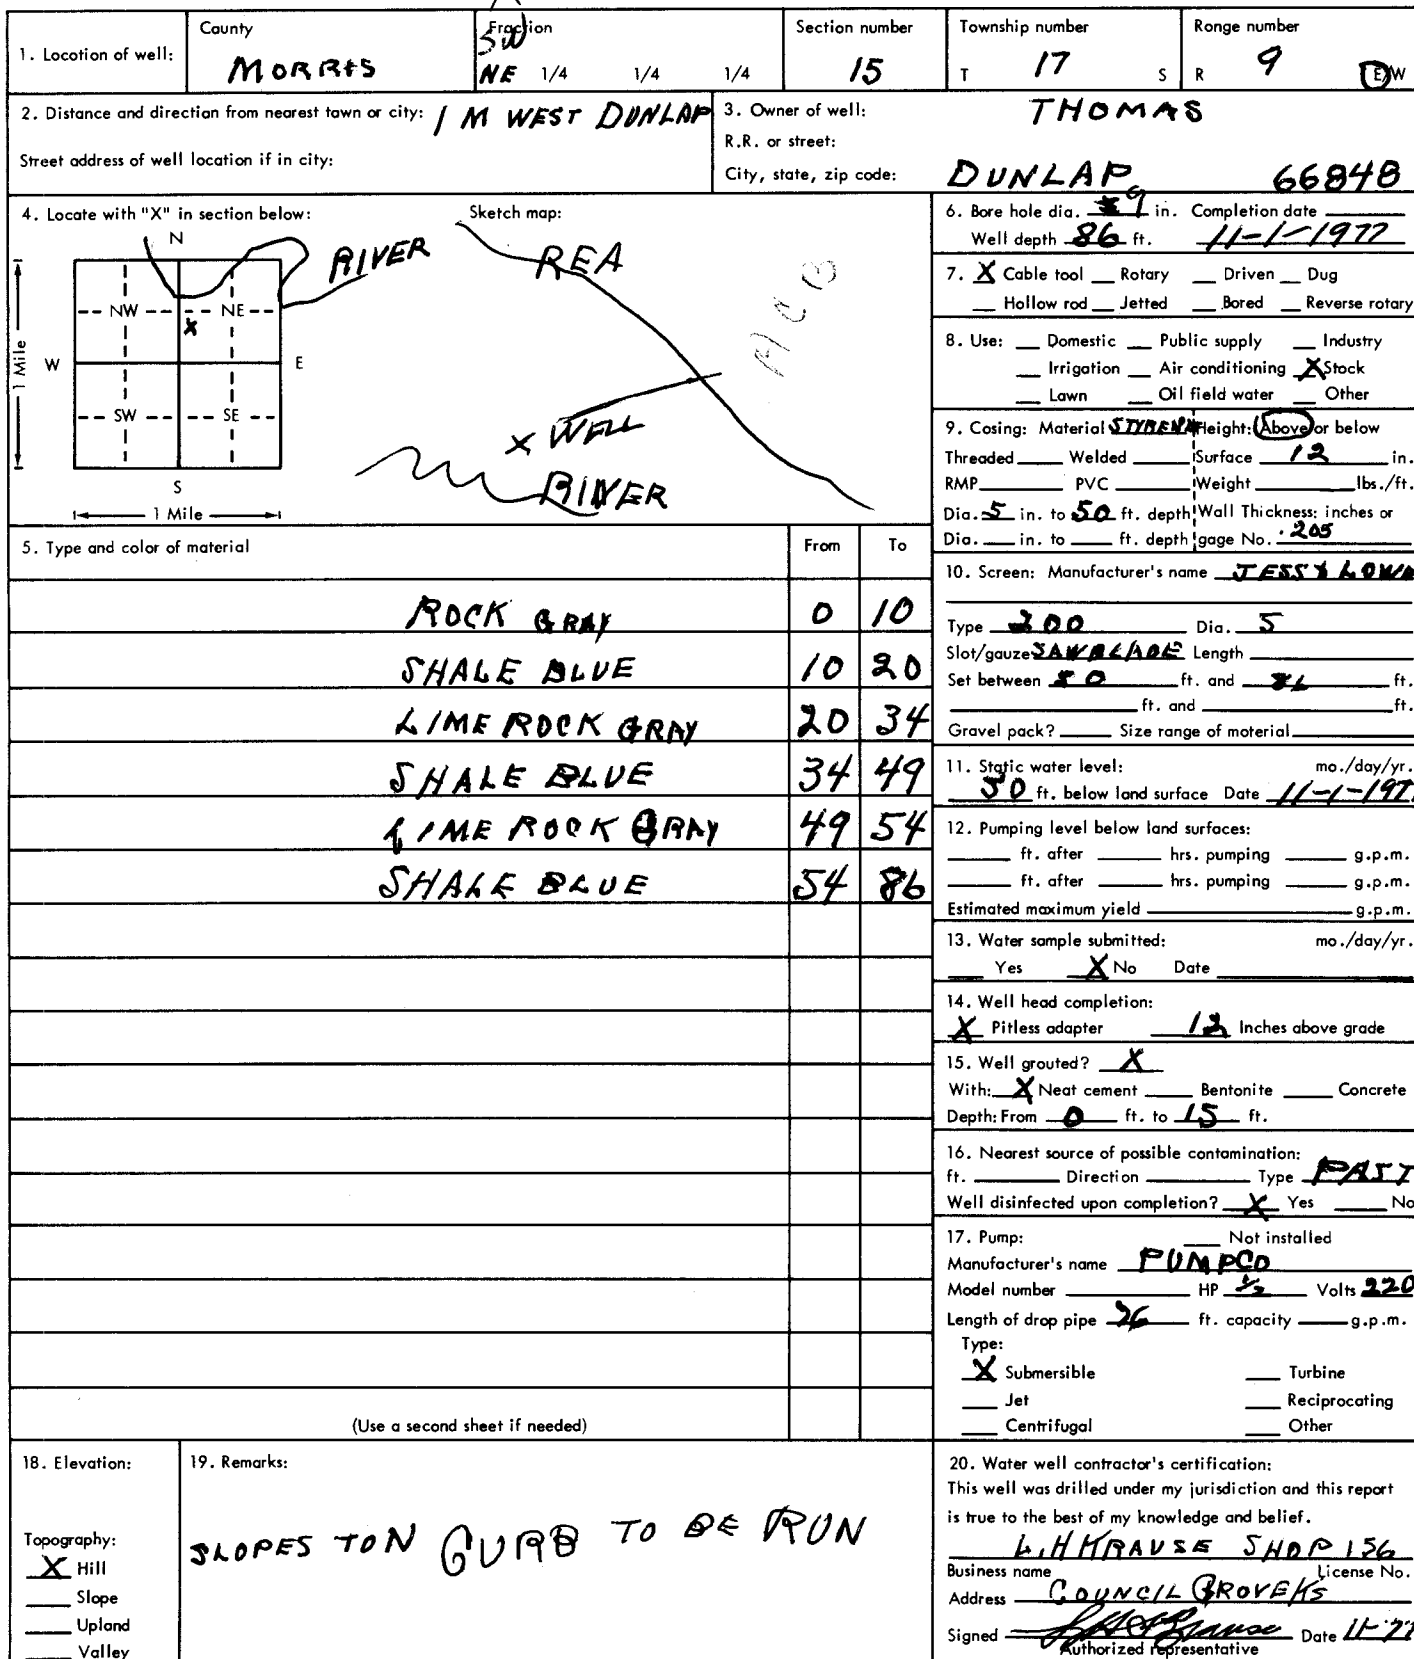 1. Location of well:
County
MORRIS
Fraction
SW
NE 1/4 1/4 1/4
Section number
15
Township number
T 17 S
Range number
R 9 E/W
2. Distance and direction from nearest town or city: 1 M WEST DUNLAP
Street address of well location if in city:
3. Owner of well: THOMAS
R.R. or street:
City, state, zip code: DUNLAP 66848
4. Locate with "X" in section below:
Sketch map:
N
RIVER
NW NE
X
W E
SW SE
S
1 Mile
1 Mile
REA
X WELL
RIVER
5. Type and color of material From To
ROCK GRAY 0 10
SHALE BLUE 10 20
LIME ROCK GRAY 20 34
SHALE BLUE 34 49
LIME ROCK GRAY 49 54
SHALE BLUE 54 86
(Use a second sheet if needed)
6. Bore hole dia. 9 in. Completion date
Well depth 86 ft. 11-1-1977
7. X Cable tool Rotary Driven Dug
Hollow rod Jetted Bored Reverse rotary
8. Use: Domestic Public supply Industry
Irrigation Air conditioning X Stock
Lawn Oil field water Other
9. Casing: Material Height: Above or below
Threaded Welded Surface 12 in.
RMP PVC Weight lbs./ft.
Dia. 5 in. to 50 ft. depth Wall Thickness: inches or
Dia. in. to ft. depth gage No. .205
10. Screen: Manufacturer's name
Type 200 Dia. 5
Slot/gauze SAWBLADE Length
Set between 50 ft. and ft.
ft. and ft.
Gravel pack? Size range of material
11. Static water level: mo./day/yr.
50 ft. below land surface Date 11-1-197
12. Pumping level below land surfaces:
ft. after hrs. pumping g.p.m.
ft. after hrs. pumping g.p.m.
Estimated maximum yield g.p.m.
13. Water sample submitted: mo./day/yr.
Yes X No Date
14. Well head completion:
X Pitless adapter 12 Inches above grade
15. Well grouted? X
With: X Neat cement Bentonite Concrete
Depth: From 0 ft. to 15 ft.
16. Nearest source of possible contamination:
ft. Direction Type PAST
Well disinfected upon completion? X Yes No
17. Pump: Not installed
Manufacturer's name PUMPCO
Model number HP 1/2 Volts 220
Length of drop pipe 76 ft. capacity g.p.m.
Type:
X Submersible Turbine
Jet Reciprocating
Centrifugal Other
18. Elevation:
Topography:
X Hill
Slope
Upland
Valley
19. Remarks:
SLOPES TON CURB TO BE RUN
20. Water well contractor's certification:
This well was drilled under my jurisdiction and this report
is true to the best of my knowledge and belief.
L.H KRAUSE SHOP 156
Business name License No.
Address COUNCIL GROVE KS
Signed L H Krause Date 11-77
Authorized representative